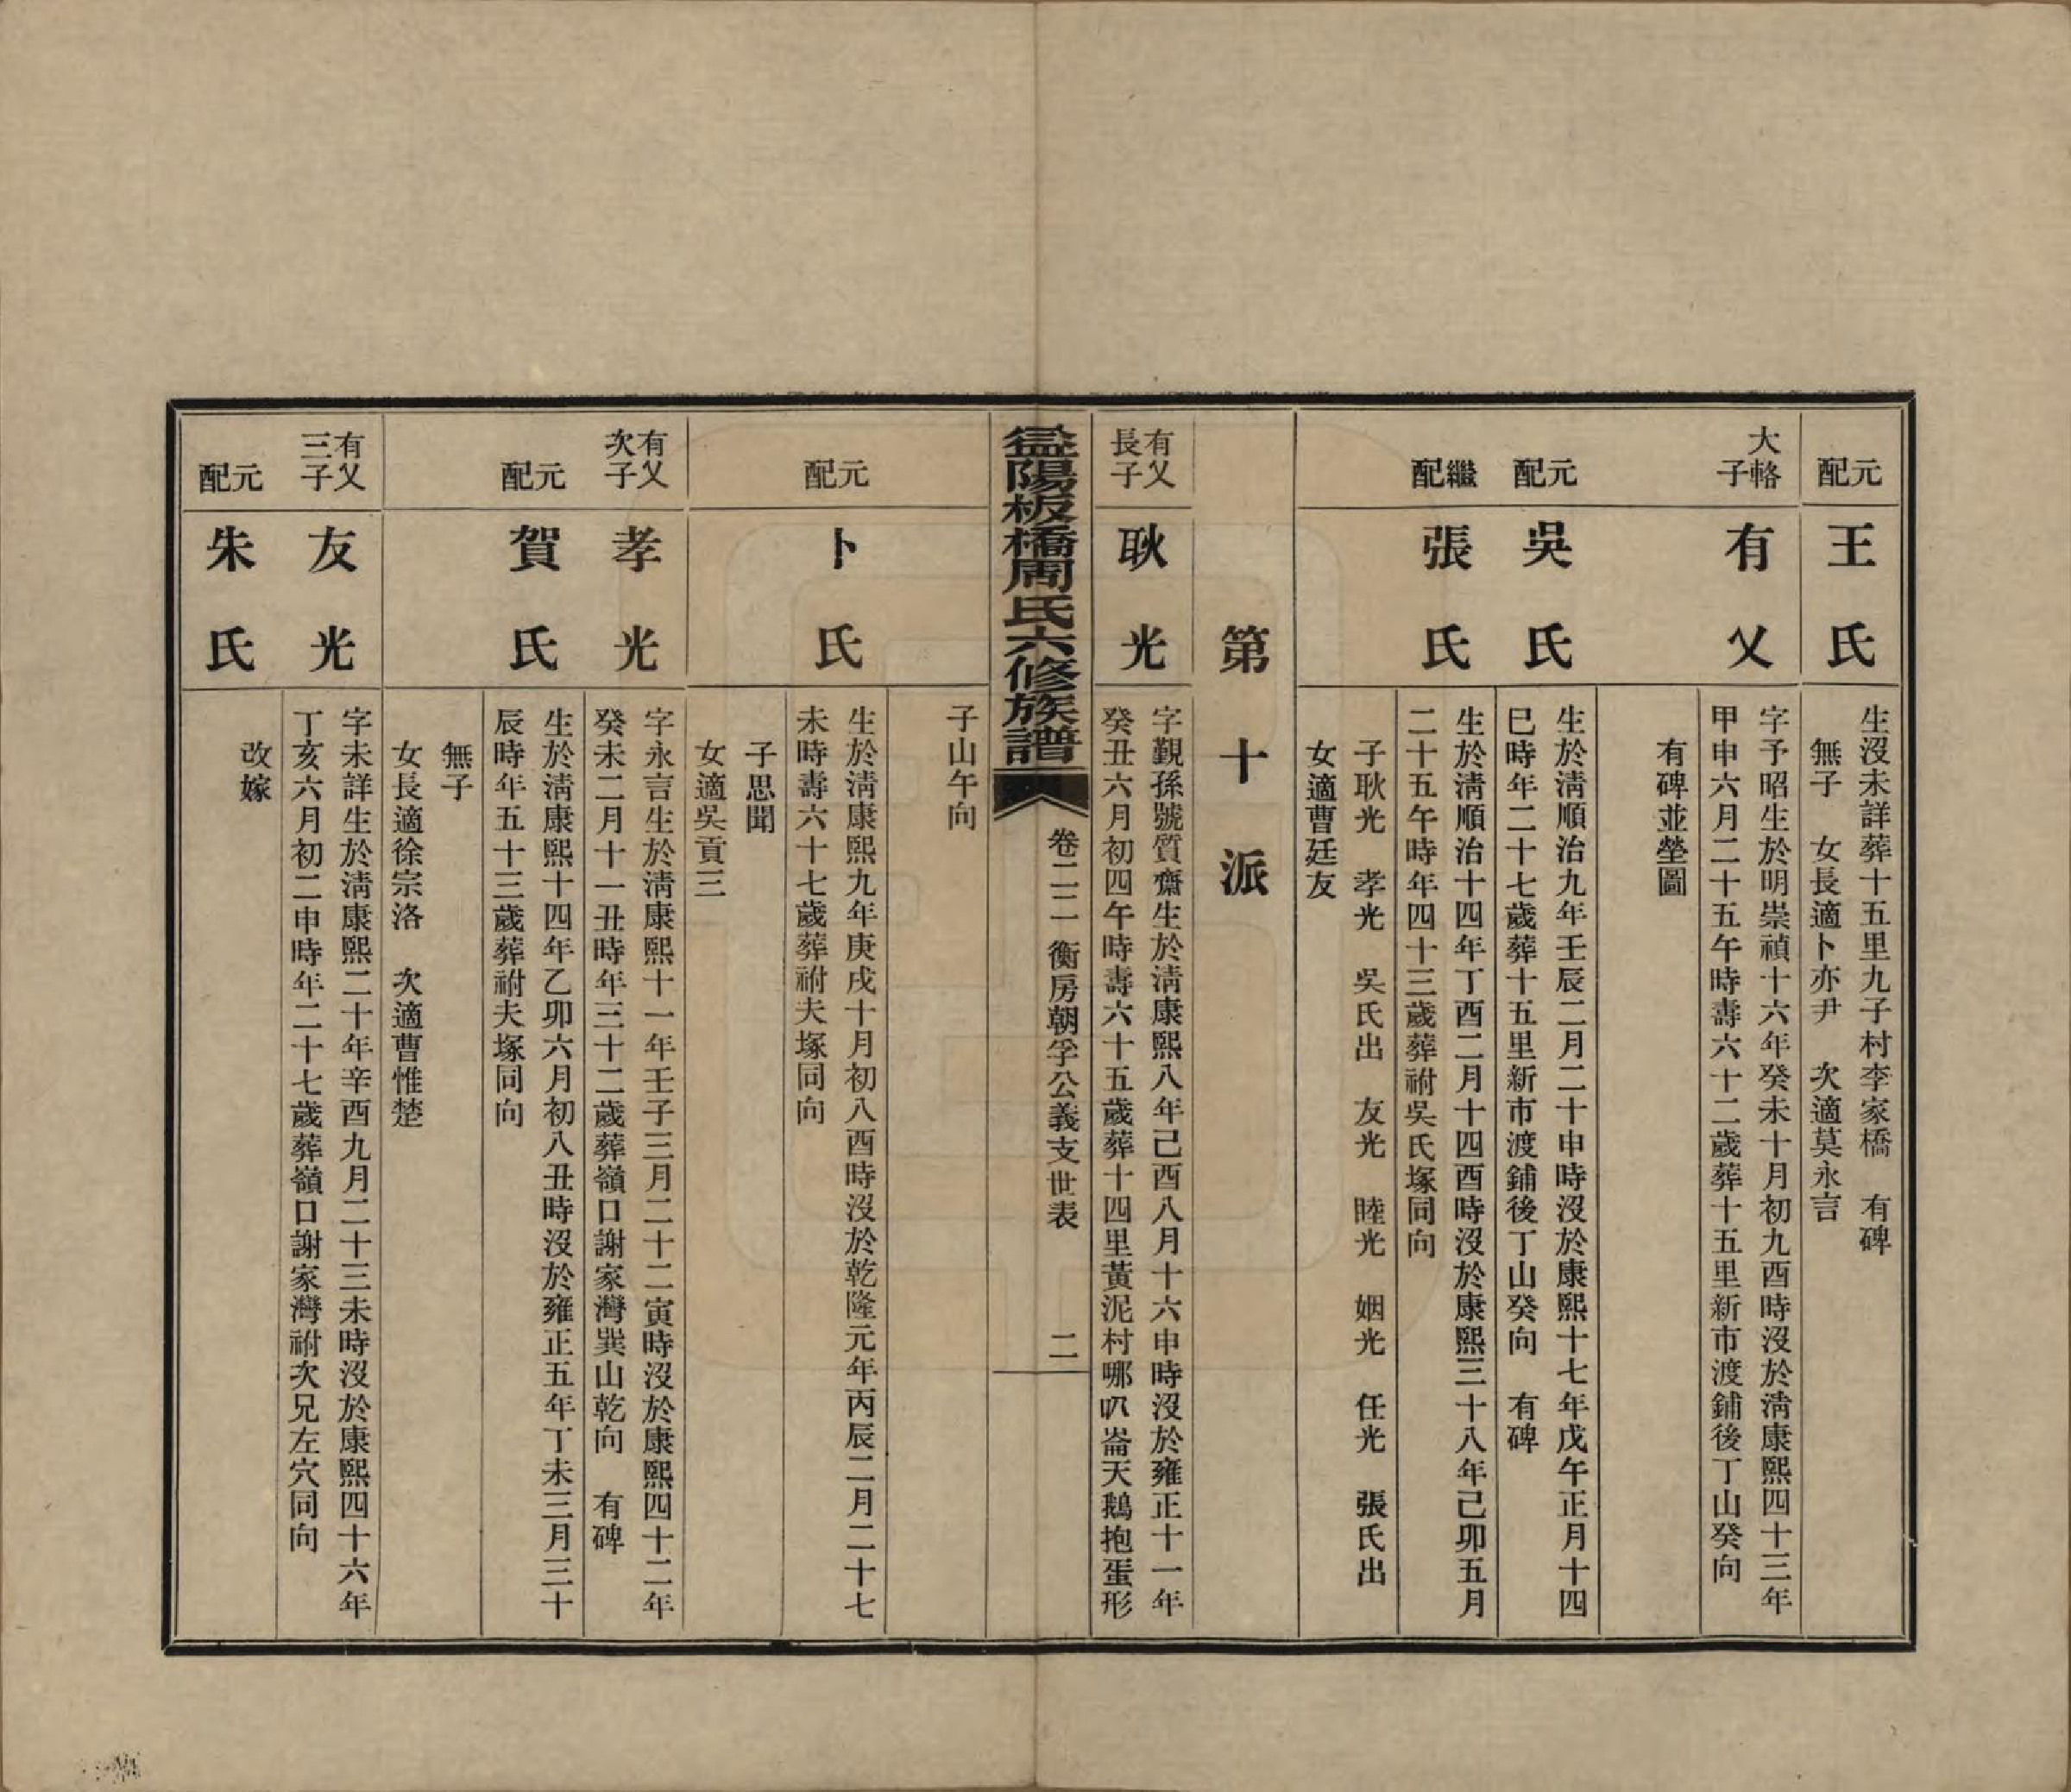 元配
王氏
生沒未詳葬十五里九子村李家橋　有碑
無子　女長適卜亦尹　次適莫永言
大輅子
有乂
字予昭生於明崇禎十六年癸未十月初九酉時沒於淸康熙四十三年
甲申六月二十五午時壽六十二歲葬十五里新市渡鋪後丁山癸向
有碑並塋圖
元配
吳氏
生於淸順治九年壬辰二月二十申時沒於康熙十七年戊午正月十四
巳時年二十七歲葬十五里新市渡鋪後丁山癸向　有碑
繼配
張氏
生於淸順治十四年丁酉二月十四酉時沒於康熙三十八年己卯五月
二十五午時年四十三歲葬祔吳氏塚同向
子耿光　孝光　吳氏出　友光　睦光　姻光　任光　張氏出
女適曹廷友
第十派
有乂長子
耿光
字覲孫號質齋生於淸康熙八年己酉八月十六申時沒於雍正十一年
癸丑六月初四午時壽六十五歲葬十四里黃泥村哪叭崙天鵝抱蛋形
益陽板橋周氏六修族譜
卷二二　衡房朝孚公義支世表
二
子山午向
元配
卜氏
生於淸康熙九年庚戌十月初八酉時沒於乾隆元年丙辰二月二十七
未時壽六十七歲葬祔夫塚同向
子思聞
女適吳貢三
有乂次子
孝光
字永言生於淸康熙十一年壬子三月二十二寅時沒於康熙四十二年
癸未二月十一丑時年三十二歲葬嶺口謝家灣巽山乾向　有碑
元配
賀氏
生於淸康熙十四年乙卯六月初八丑時沒於雍正五年丁未三月三十
辰時年五十三歲葬祔夫塚同向
無子
女長適徐宗洛　次適曹惟楚
有乂三子
友光
字未詳生於淸康熙二十年辛酉九月二十三未時沒於康熙四十六年
丁亥六月初二申時年二十七歲葬嶺口謝家灣祔次兄左穴同向
元配
朱氏
改嫁